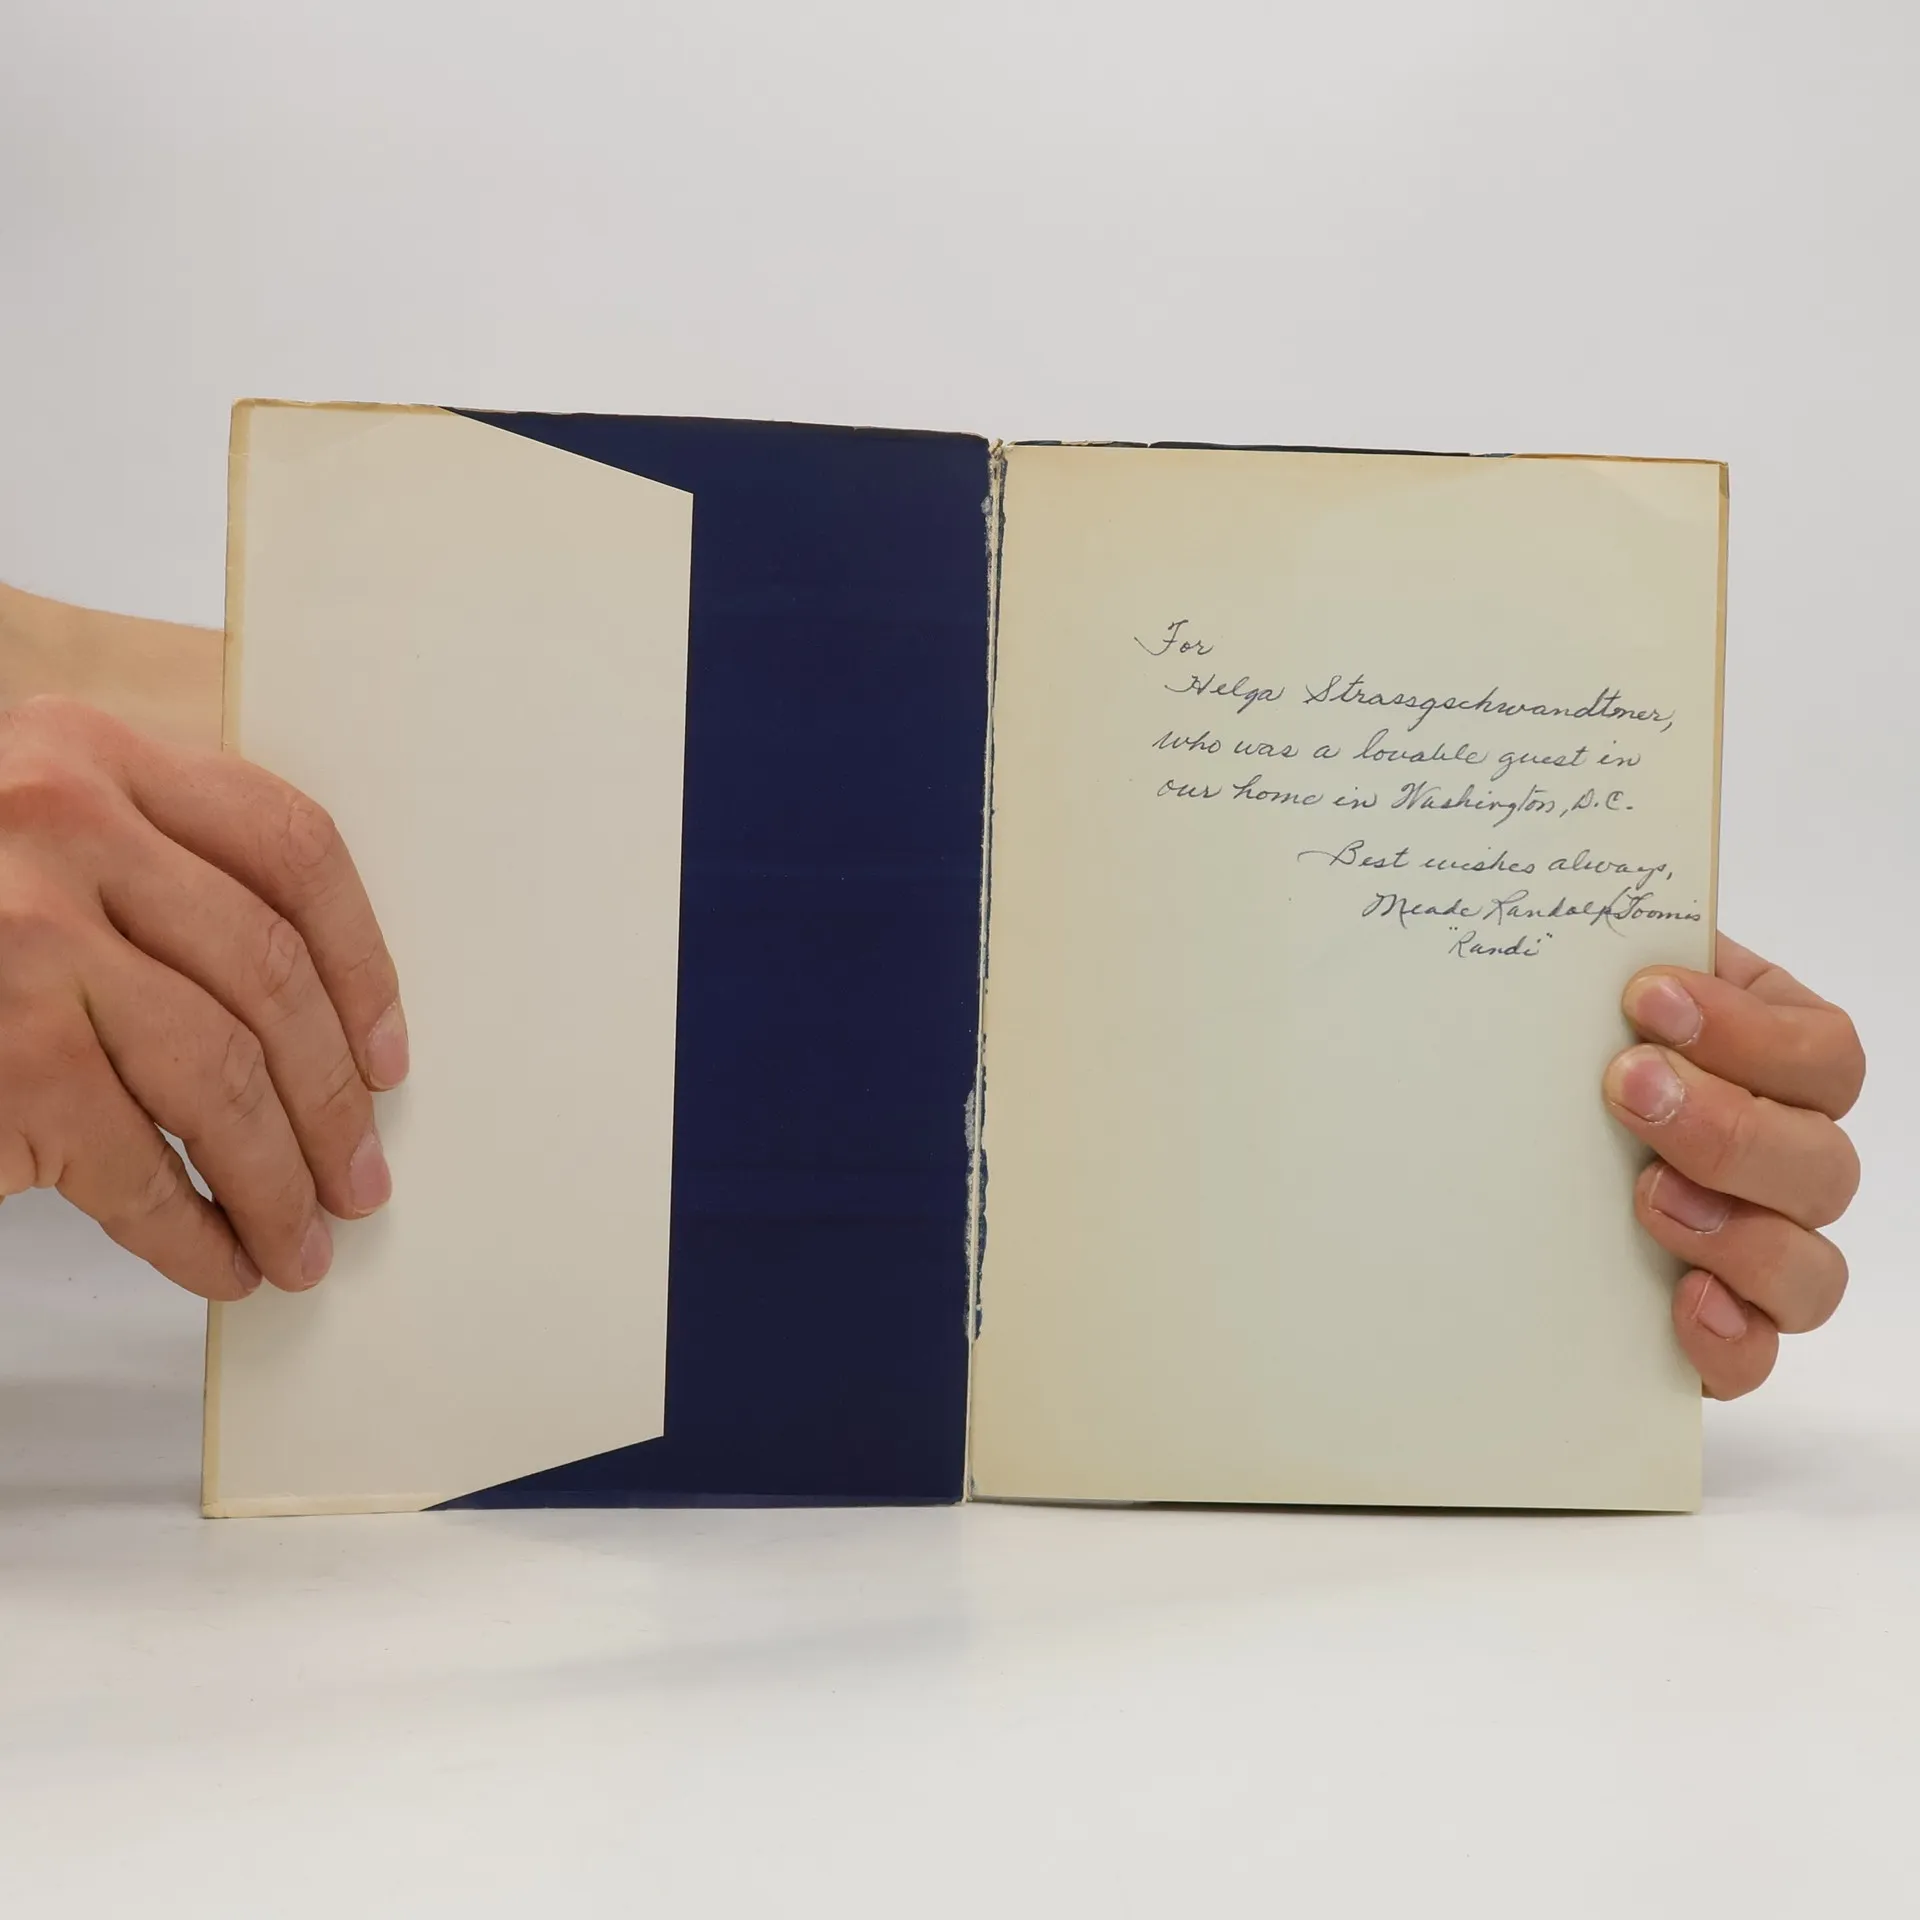 For
Helga Strassgschwandtner,
who was a lovable guest in
our home in Washington, D.C.
Best wishes always,
Meade Randolph Toomis
"Randi"